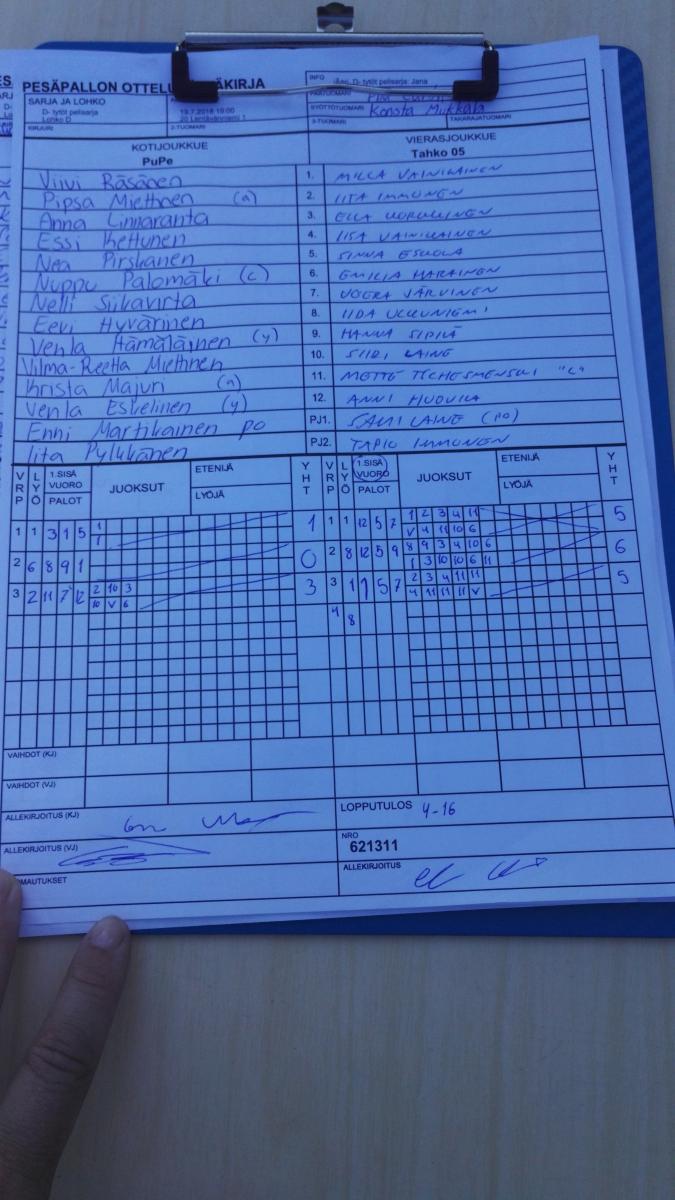 PESÄPALLON OTTELU ÄKIRJA
INFO D- tytöt pelisarja: Jana
SARJA JA LOHKO
D- tytöt pelisarja
Lohko D
19.7.2018 10:00
20 Lentävänniemi 1
SYÖTTÖTUOMARI Konsta Mukkala
KIRJURI 2-TUOMARI 3-TUOMARI TAKARAJATUOMARI
KOTIJOUKKUE VIERASJOUKKUE
PuPe Tahko 05
Viivi Räsänen 1. MILLA VAINIKAINEN
Pipsa Miettinen 2. IITA IMMONEN
Anna Linnaranta 3. ELLA
Essi Kettunen 4. IISA VAINIKAINEN
Nea Pirskanen 5. SINNA ESKOLA
Nuppu Palomäki (c) 6. EMILIA HARAINEN
Nelli Siikavirta 7. VEERA JÄRVINEN
Eevi Hyvärinen 8. IIDA
Venla Hämäläinen (y) 9. HANNA SIPILÄ
Vilma-Reetta Miettinen 10. SIIRI LAINE
Krista Majuri 11. METTE "C"
Venla Eskelinen (y) 12. ANNI HUOVILA
Enni Martikainen po PJ1. SAMI LAINE (PO)
Iita Pylkkänen PJ2. TAPIO IMMONEN
VRP LYÖ 1.SISÄ VUORO PALOT JUOKSUT ETENIJÄ LYÖJÄ YHT VRP LYÖ 1.SISÄ VUORO PALOT JUOKSUT ETENIJÄ LYÖJÄ YHT
1 1 3 1 5 1 1 1 1 12 5 7 1 2 3 4 11 5
1 V 4 11 10 6
2 6 8 9 1 0 2 8 12 5 9 8 9 3 4 10 6 6
1 3 10 10 6 11
3 2 11 7 12 2 10 3 3 3 1 1 5 7 2 3 4 11 11 5
10 V 6 4 11 11 11 V
4 8
VAIHDOT (KJ)
VAIHDOT (VJ)
ALLEKIRJOITUS (KJ) LOPPUTULOS 4-16
ALLEKIRJOITUS (VJ) NRO
621311
MAUTUKSET ALLEKIRJOITUS